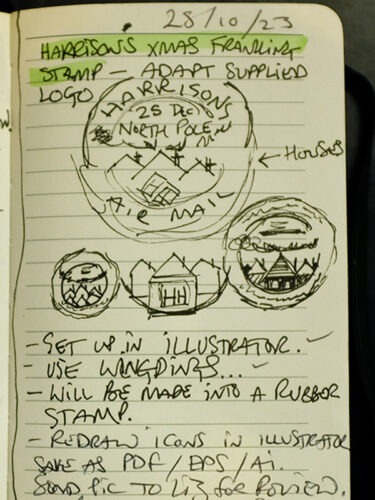 28/10/23
HARRISON'S XMAS FRANKING
STAMP - ADAPT SUPPLIED
LOGO
HARRISONS
25 DEC
NORTH POLE
AIR MAIL
← HOUSES
HH
- SET UP IN ILLUSTRATOR. ✓
- USE WINGDINGS... ✓
- WILL BE MADE INTO A RUBBER
STAMP.
- REDRAW ICONS IN ILLUSTRATOR
SAVE AS PDF/EPS/Ai.
SEND PIC TO LIZ FOR REVIEW.